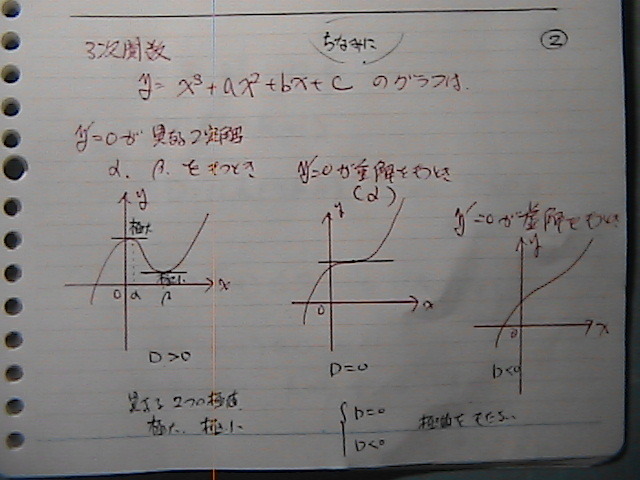 ちなみに
②
3次関数
y = x³ + ax² + bx + c のグラフは.
y'=0が異なる2実解
α, β をもつとき
y'=0が重解をもつとき
(α)
y'=0が虚解をもつとき
y
極大
極小
0 α β x
D>0
y
0 x
D=0
y
0 x
D<0
異なる2つの極値
極大, 極小
D=0
D<0
極値をもたない